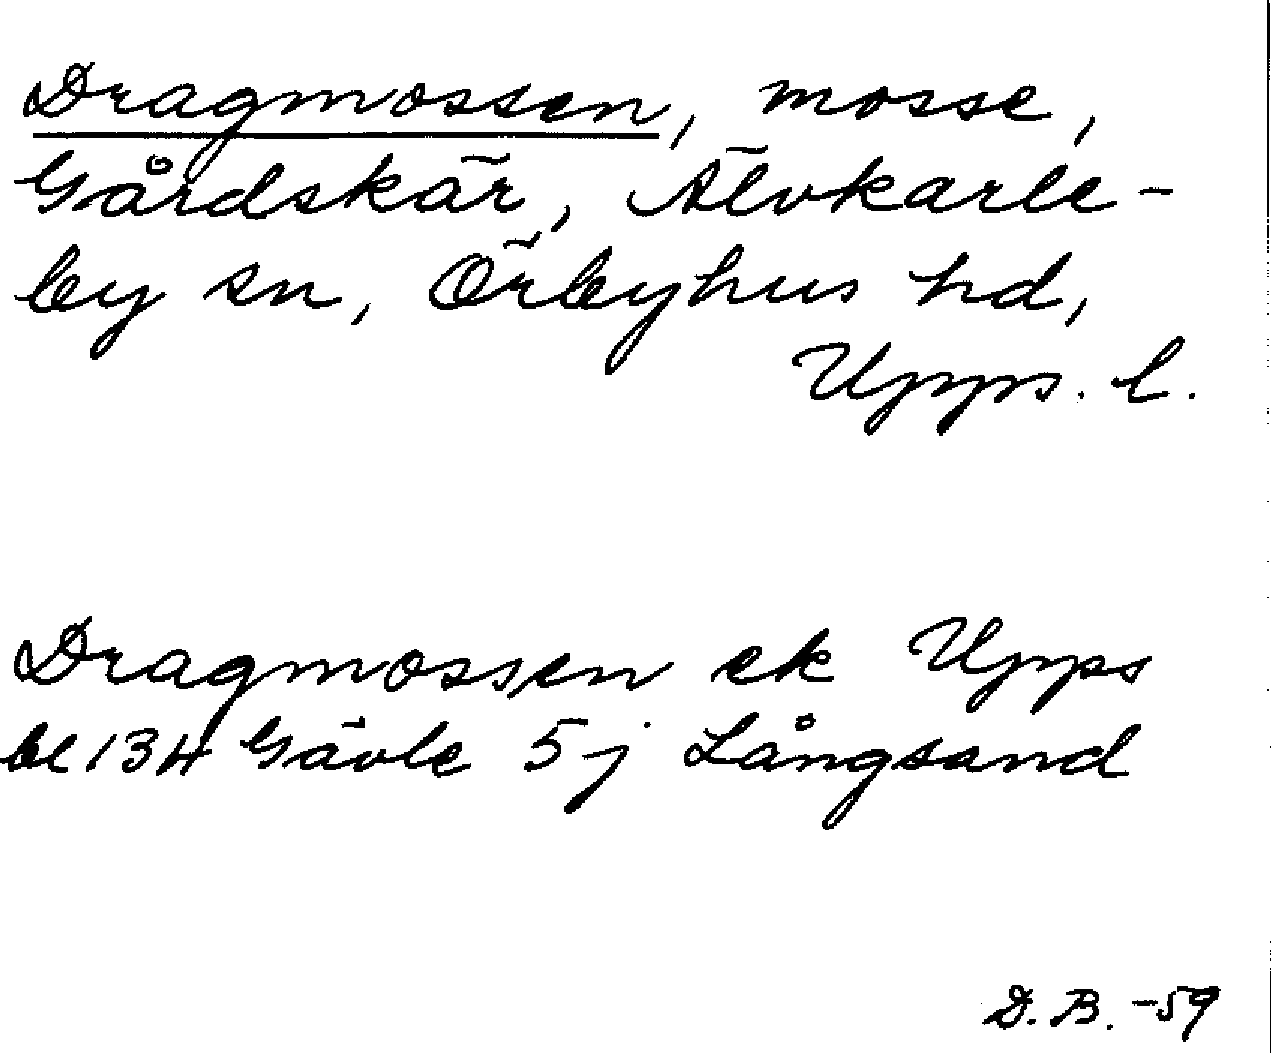 Dragmossen, mosse,
Gårdskär, Älvkarle-
by sn, Örbyhus hd,
Upps. l.
Dragmossen ek Upps
bl 134 Gävle 5j Långsand
D.B. -59